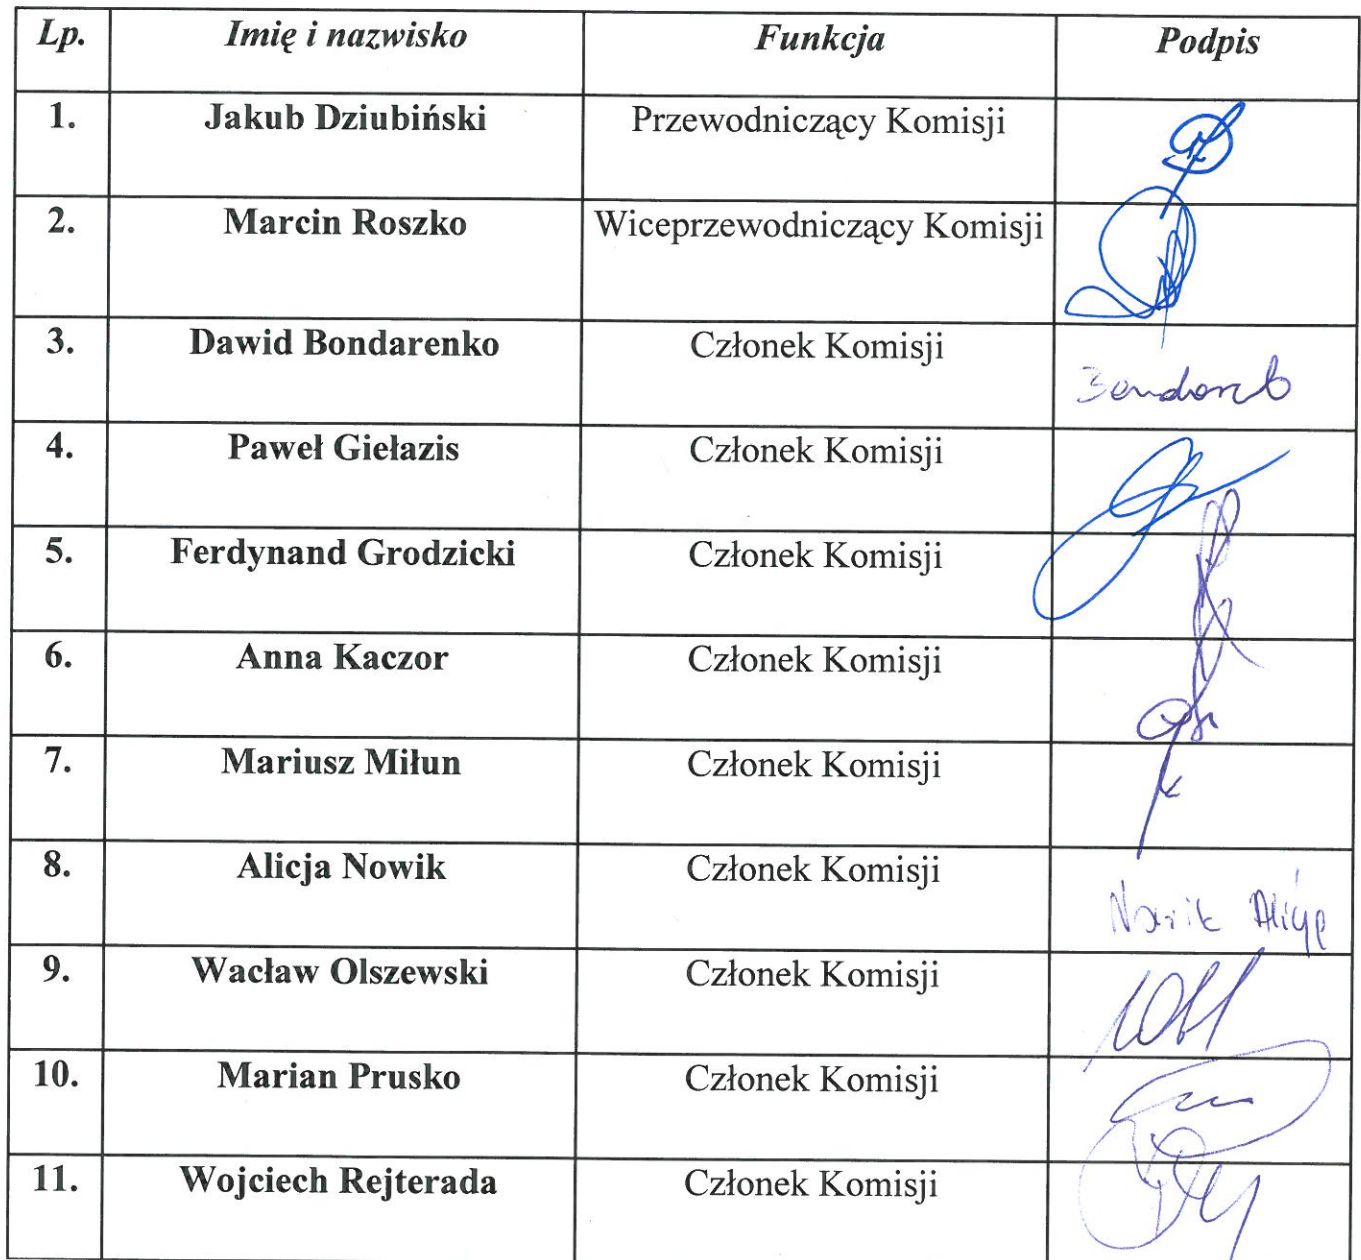 Lp. Imię i nazwisko Funkcja Podpis
1. Jakub Dziubiński Przewodniczący Komisji
2. Marcin Roszko Wiceprzewodniczący Komisji
3. Dawid Bondarenko Członek Komisji
4. Paweł Giełazis Członek Komisji
5. Ferdynand Grodzicki Członek Komisji
6. Anna Kaczor Członek Komisji
7. Mariusz Miłun Członek Komisji
8. Alicja Nowik Członek Komisji Nowik Alicja
9. Wacław Olszewski Członek Komisji
10. Marian Prusko Członek Komisji
11. Wojciech Rejterada Członek Komisji